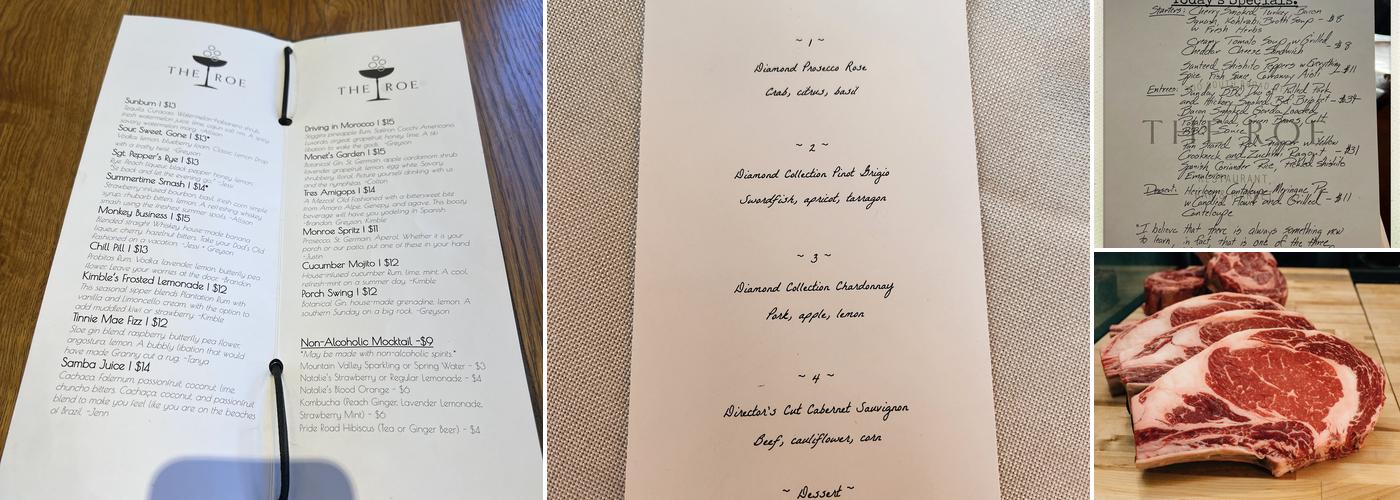 THE ROE
Sunburn | $13
Tequila, Curacao, Watermelon-habanero shrub,
fresh watermelon juice, lime, cajun salt rim. A spicy
Sour, Sweet, Gone | $13*
Vodka, lemon, blueberry foam. Classic Lemon Drop
with a frothy twist. ~Greyson
Sgt. Pepper's Rye | $13
Rye, Peach liqueur, black pepper honey, lemon.
"Sit back and let the evening go." ~Jess
Summertime Smash | $14*
Strawberry-infused bourbon, basil, fresh corn simple
syrup, rhubarb bitters, lemon. A refreshing whiskey
smash using the freshest summer spoils. ~Alison
Monkey Business | $15
Blended straight Whiskey, house-made banana
liqueur, cherry, hazelnut bitters. Take your Dad's Old
Fashioned on a vacation. ~Jess + Greyson
Chill Pill | $13
Probitas Rum, Vodka, lavender, lemon, butterfly pea
flower. Leave your worries at the door. ~Brandon
Kimble's Frosted Lemonade | $12
This seasonal sipper blends Plantation Rum with
vanilla and limoncello cream, with the option to
add muddled kiwi or strawberry. ~Kimble
Tinnie Mae Fizz | $12
Sloe gin blend, raspberry, butterfly pea flower,
angostura, lemon. A bubbly libation that would
have made Granny cut a rug. ~Tanya
Samba Juice | $14
Cachaca, Falernum, passionfruit, coconut, lime,
chuncho bitters. Cachaça, coconut, and passionfruit
blend to make you feel like you are on the beaches
of Brazil. ~Jenn
THE ROE
Driving in Morocco | $15
Siggins pineapple Rum, Saffron, Cocchi Americano,
Luxardo, grapefruit, honey, lime. A tiki
libation to wake the gods. ~Greyson
Monet's Garden | $15
Botanical Gin, St. Germain, apple cardamom shrub,
lavender, grapefruit, lemon, egg white. Savory,
shrubbery, floral. Picture yourself drinking with us
and the nymphas. ~Colton
Tres Amigops | $14
A Mezcal Old Fashioned with a bittersweet bite
from Amaro, Alpe, Genepy, and agave. This boozy
beverage will have you yodeling in Spanish.
~Brandon, Greyson, Kimble
Monroe Spritz | $11
Prosecco, St. Germain, Aperol. Whether it is your
porch or our patio, put one of these in your hand
~Justin
Cucumber Mojito | $12
House-infused cucumber Rum, lime, mint. A cool,
refresh-mint on a summer day. ~Kimble
Porch Swing | $12
Botanical Gin, house-made grenadine, lemon. A
southern Sunday on a big rock. ~Greyson
Non-Alcoholic Mocktail ~$9
*May be made with non-alcoholic spirits.*
Mountain Valley Sparkling or Spring Water ~ $3
Natalie's Strawberry or Regular Lemonade ~ $4
Natalie's Blood Orange ~ $6
Kombucha (Peach Ginger, Lavender Lemonade,
Strawberry Mint) ~ $6
Pride Road Hibiscus (Tea or Ginger Beer) ~ $4
~ 1 ~
Diamond Prosecco Rose
Crab, citrus, basil
~ 2 ~
Diamond Collection Pinot Grigio
Swordfish, apricot, tarragon
~ 3 ~
Diamond Collection Chardonnay
Pork, apple, lemon
~ 4 ~
Director's Cut Cabernet Sauvignon
Beef, cauliflower, corn
~ Dessert ~
Today's Specials:
Starters: Cherry Smoked Turkey, Bacon
Squash, Kohlrabi, Broth Soup - $8
w Fresh Herbs
Creamy Tomato Soup w Grilled - $8
Cheddar Cheese Sandwich
Sauteed Shishito Peppers w Everything - $11
Spice, Fish Sauce, Caraway Aioli
Entrees: Sunday BBQ Duo of Pulled Pork
and Hickory Smoked Beef Brisket - $34
Bacon Smoked Gouda Loaded
Potato Salad, Green Beans,
BBQ Sauce
Pan Seared Red Snapper w Yellow
Crookneck and Zucchini Ragout - $31
Spanish Coriander Rice, Pickled Shishito
Emulsion
THE ROE
RESTAURANT
Dessert: Heirloom Cantaloupe Meringue Pie
w Candied Flower and Grilled - $11
Cantaloupe
"I believe that there is always something new
to learn, in fact, that is one of the three